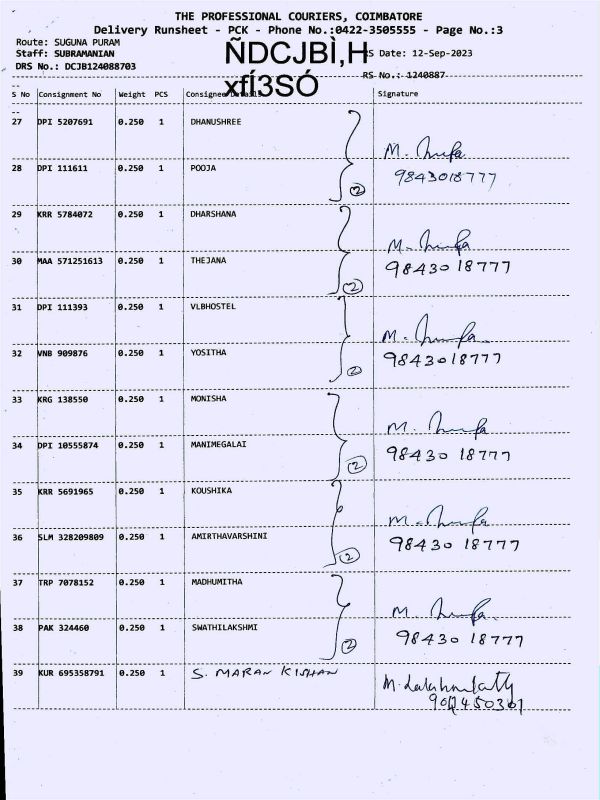 THE PROFESSIONAL COURIERS, COIMBATORE
Delivery Runsheet - PCK - Phone No.:0422-3505555 - Page No.:3
Route: SUGUNA PURAM
Staff: SUBRAMANIAN ÑDCJBÌ,H RS Date: 12-Sep-2023
DRS No.: DCJB124088703 xfÍ3SÓ RS No.: 1240887
S No Consignment No Weight PCS Consignee Details Signature
27 DPI 5207691 0.250 1 DHANUSHREE
28 DPI 111611 0.250 1 POOJA ② 9843018777
29 KRR 5784072 0.250 1 DHARSHANA
30 MAA 571251613 0.250 1 THEJANA ② 98430 18777
31 DPI 111393 0.250 1 VLBHOSTEL
32 VNB 909876 0.250 1 YOSITHA ② 9843018777
33 KRG 138550 0.250 1 MONISHA
34 DPI 10555874 0.250 1 MANIMEGALAI ② 98430 18777
35 KRR 5691965 0.250 1 KOUSHIKA
36 SLM 328209809 0.250 1 AMIRTHAVARSHINI ② 98430 18777
37 TRP 7078152 0.250 1 MADHUMITHA
38 PAK 324460 0.250 1 SWATHILAKSHMI ② 98430 18777
39 KUR 695358791 0.250 1 S. MARAN KISHAN